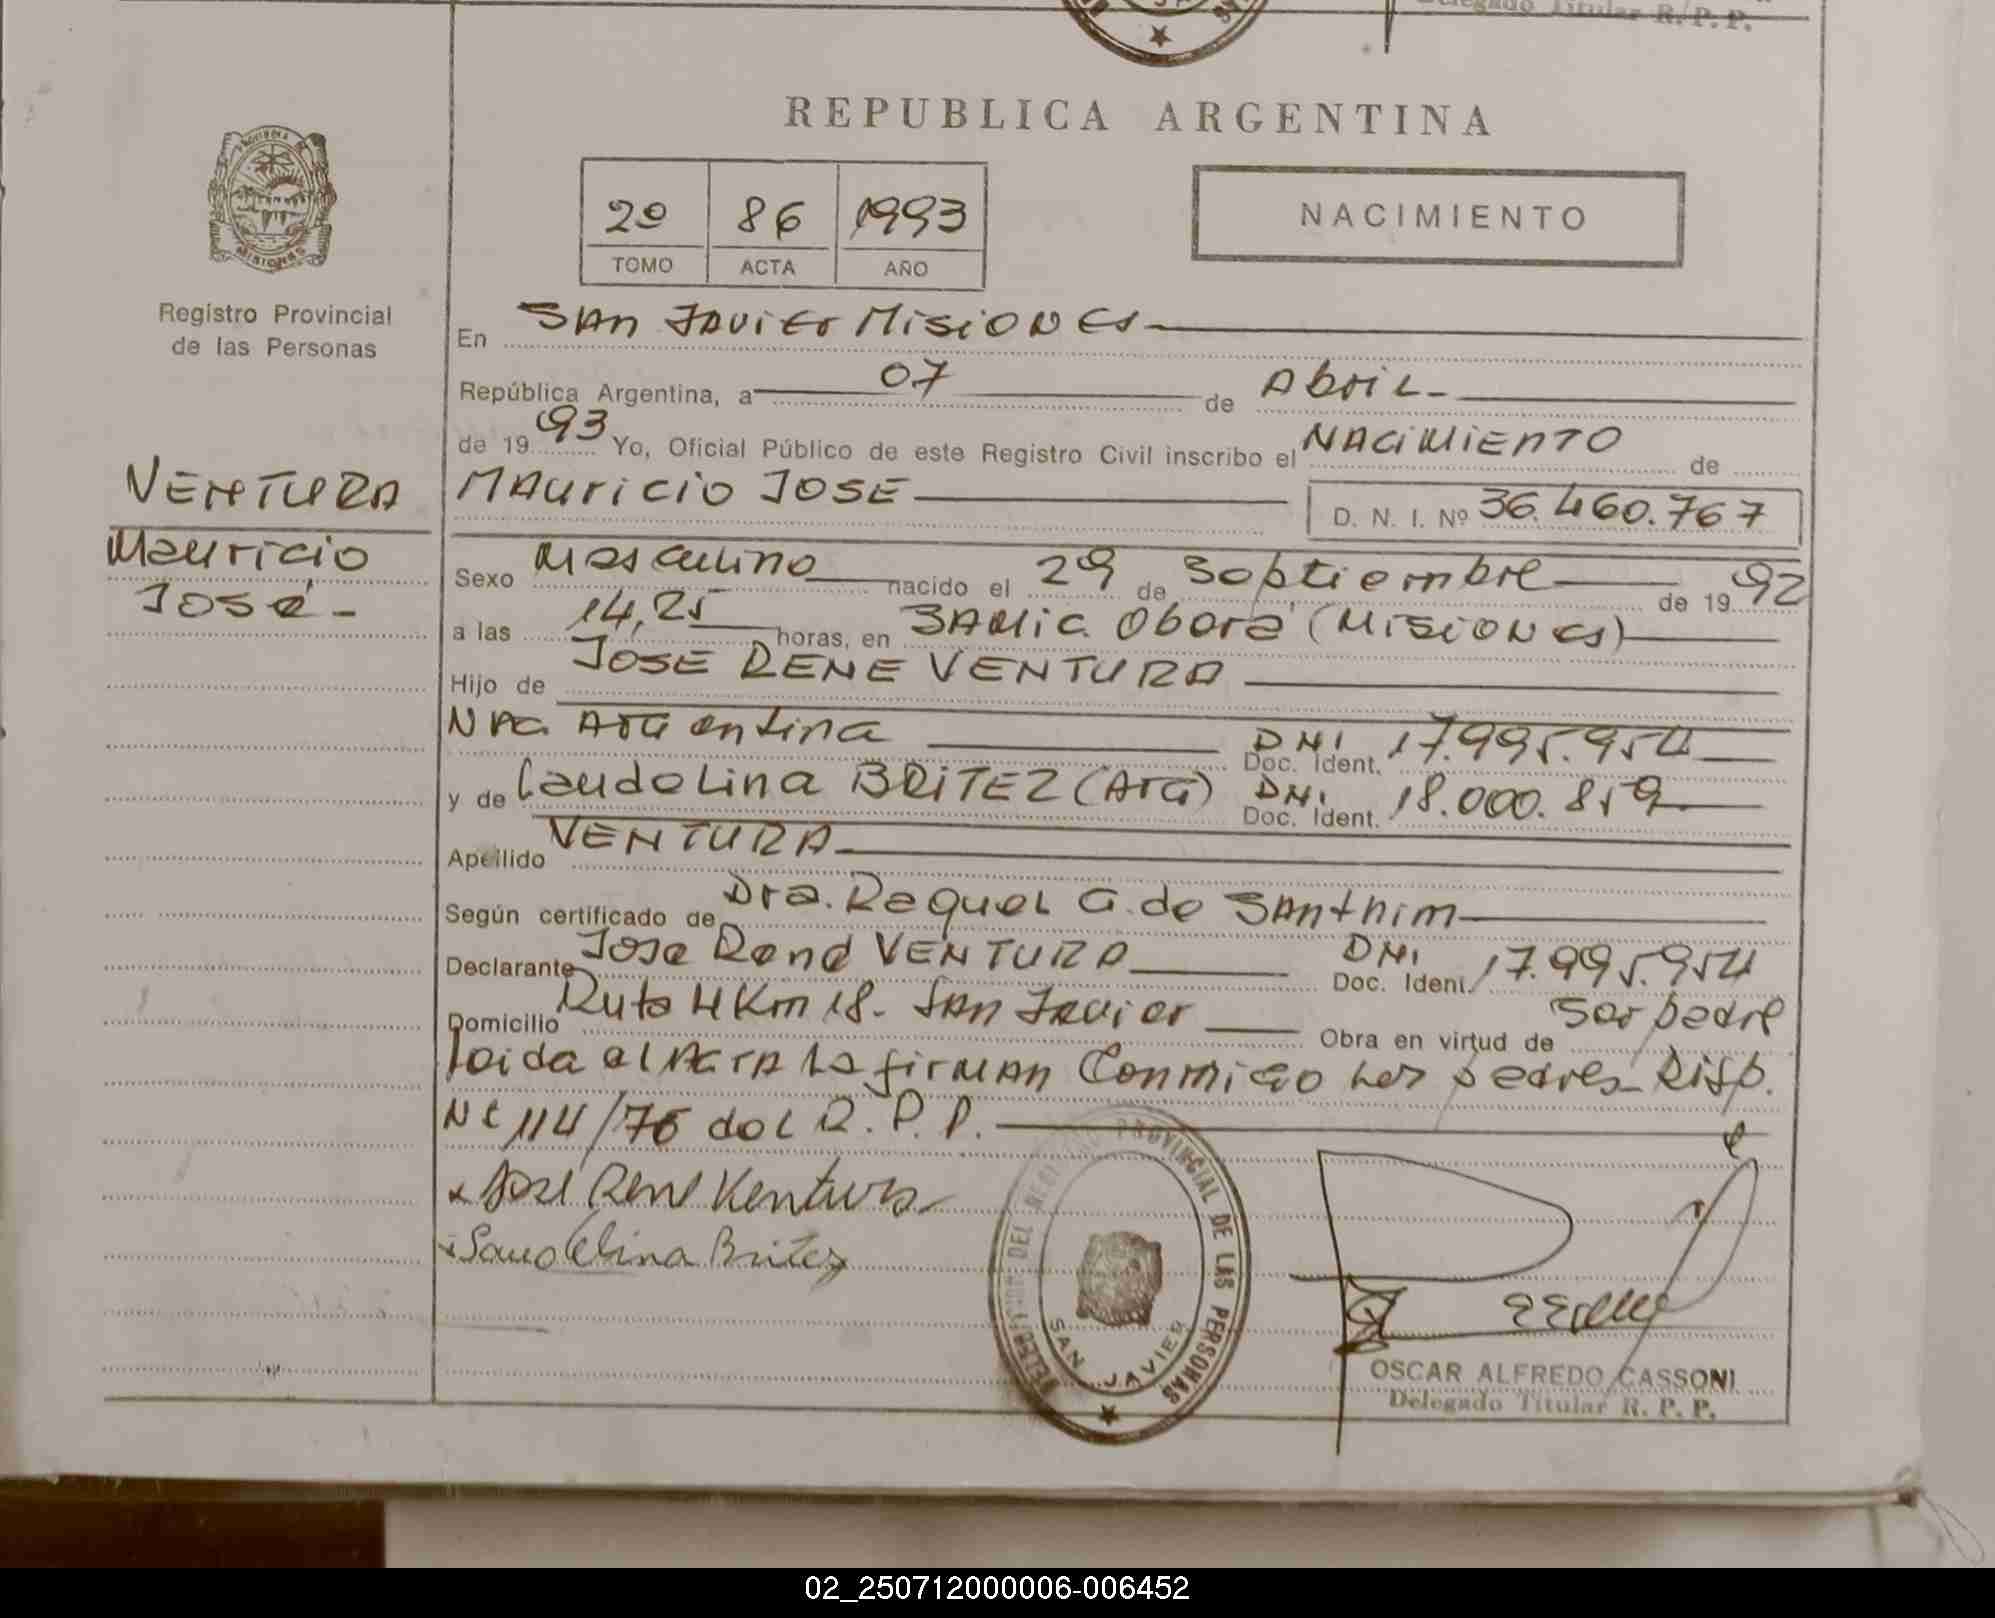 Delegado Titular R. P. P.
REPUBLICA ARGENTINA
PROVINCIA DE
MISIONES
Registro Provincial
de las Personas
2º 86 1993
TOMO ACTA AÑO
NACIMIENTO
En San Javier Misiones
República Argentina, a 07 de Abril
de 1993 Yo, Oficial Público de este Registro Civil inscribo el NACIMIENTO de
VENTURA
Mauricio
José
MAURICIO JOSE D. N. I. Nº 36.460.767
Sexo Masculino nacido el 29 de Septiembre de 1992
a las 14,25 horas, en SAMIC. Oberá (Misiones)
Hijo de JOSE RENE VENTURA
Nac. Argentina DNI Doc. Ident. 17.995.954
y de Laudelina BRITEZ (Arg) DNI. Doc. Ident. 18.000.859
Apellido VENTURA
Según certificado de Dra. Raquel G. de Santhim
Declarante Jose René VENTURA DNI Doc. Ident. 17.995.954
Domicilio Ruta 4 Km 18. San Javier Obra en virtud de Ser padre
Leida el Acta La firman Conmigo Los padres Disp.
Nº 114/76 del R. P. P.
x José Rene Ventura
x Laudelina Britez
DEL REGISTRO PROVINCIAL DE LAS PERSONAS
SAN JAVIER
OSCAR ALFREDO CASSONI
Delegado Titular R. P. P.
02_250712000006-006452